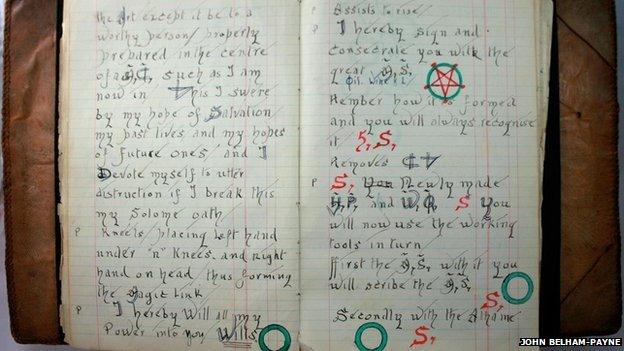 the Art except it be to a
worthy person/ properly
prepared in the centre
of a such as I am
now in This I swere
by my hope of Salvation
my past lives and my hopes
of future ones, and I
Devote myself to utter
distruction if I break this
my Solome oath
P Kneels, placing left hand
under "n" Knees and right
hand on head thus forming
the Magic Link
P I hereby Will all my
Power into you Wills
P Assists to rise,
P I hereby sign and
consecrate you with the
great
Rember how it is formed
and you will always recognise
it S,
Removes
P S, You Newly made
H,P, and W,Q, S You
will now use the working
tools in turn
ffirst the S, with it you
will scribe the S,
S,
Secondly with the Athame
S,
JOHN BELHAM-PAYNE